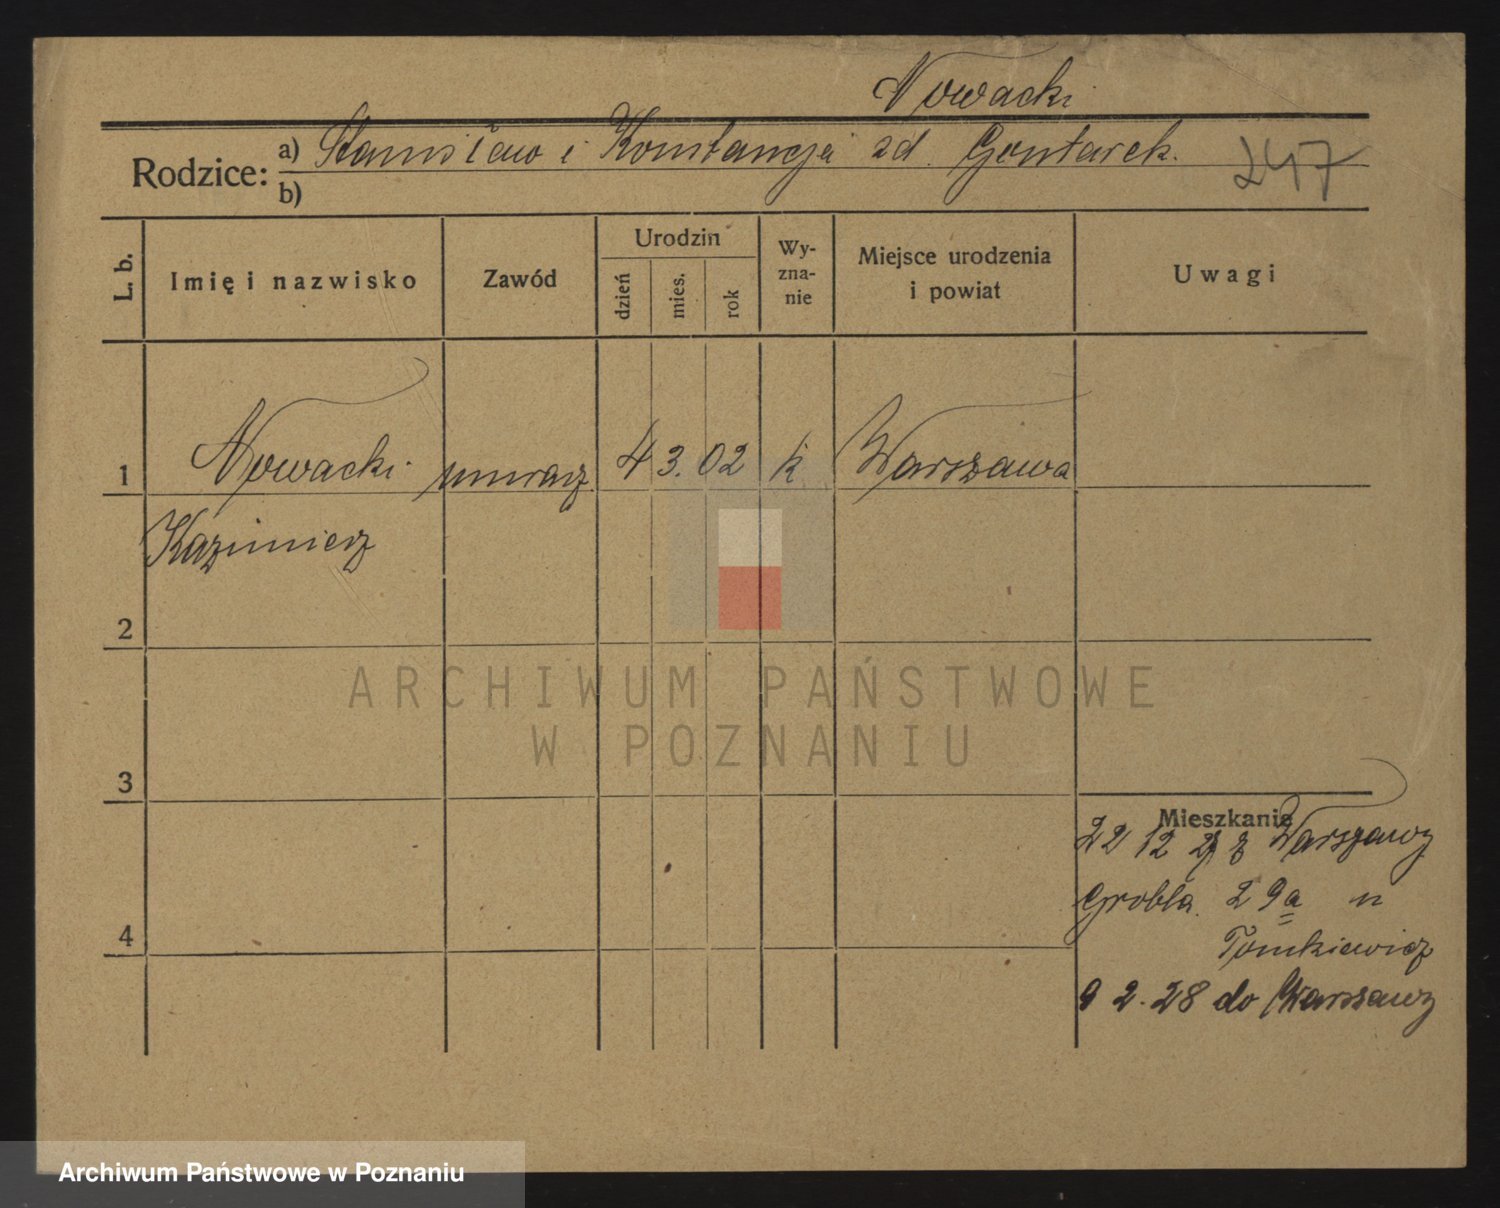 Nowacki
Rodzice: a) Stanisław i Konstancja zd. Gontarek.
b)
247
L. b. Imię i nazwisko Zawód Urodzin dzień mies. rok Wyznanie Miejsce urodzenia i powiat Uwagi
1 Nowacki murarz 4 3. 02 k Warszawa
Kazimierz
2
3
4
Mieszkanie
22 12 27 z Warszawy
Grobla 29a u
Tomkiewicz
9 2. 28 do Warszawy
ARCHIWUM PAŃSTWOWE
W POZNANIU
Archiwum Państwowe w Poznaniu